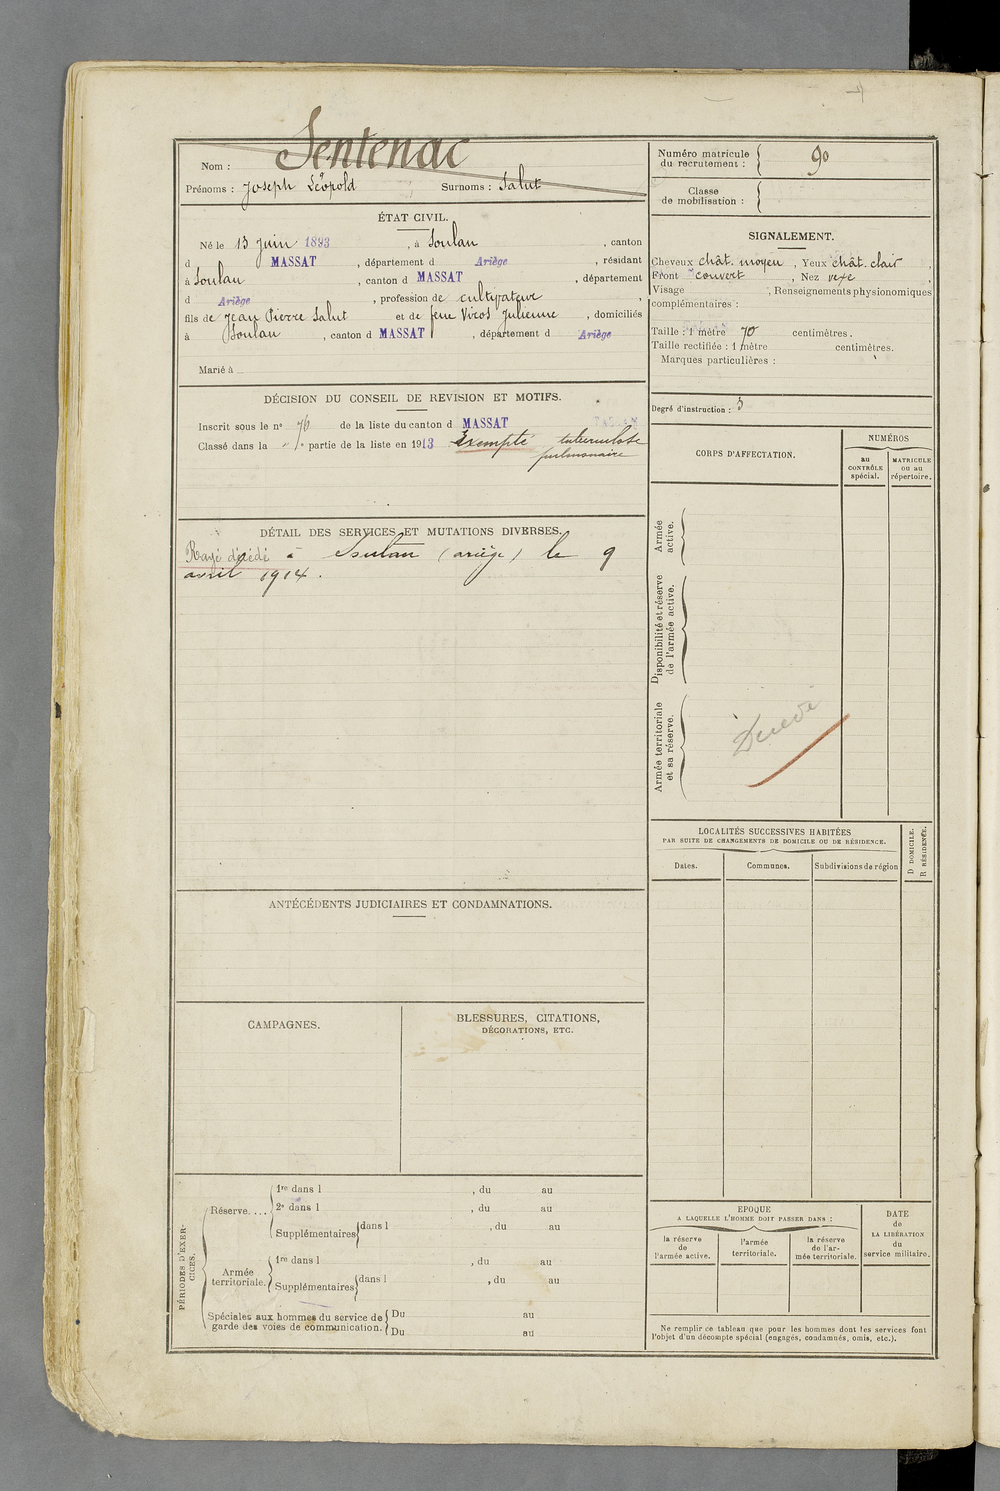 Nom : Sentenac
Prénoms : Joseph Léopold Surnoms : Salut
ÉTAT CIVIL.
Né le 13 juin 1893, à Soulan, canton
d MASSAT, département d Ariège, résidant
à Soulan, canton d MASSAT, département
d Ariège, profession de cultivateur,
fils de Jean Pierre Salut et de feue Vicos Julienne, domiciliés
à Soulan, canton d MASSAT, département d Ariège
Marié à
DÉCISION DU CONSEIL DE REVISION ET MOTIFS.
Inscrit sous le n° 76 de la liste du canton d MASSAT
Classé dans la 1e partie de la liste en 1913 Exempté tuberculose
pulmonaire
DÉTAIL DES SERVICES ET MUTATIONS DIVERSES.
Rayé décédé à Soulan (ariège) le 9
avril 1914.
ANTÉCÉDENTS JUDICIAIRES ET CONDAMNATIONS.
CAMPAGNES.
BLESSURES, CITATIONS,
DÉCORATIONS, ETC.
PÉRIODES D'EXER-
CICES.
Réserve....
1re dans l , du au
2e dans l , du au
Supplémentaires dans l , du au
Armée
territoriale.
1re dans l , du au
Supplémentaires dans l , du au
Spéciales aux hommes du service de
garde des voies de communication.
Du au
Du au
Numéro matricule
du recrutement : 90
Classe
de mobilisation :
SIGNALEMENT.
Cheveux chât. moyen, Yeux chât. clair,
Front couvert, Nez vexe
Visage , Renseignements physionomiques
complémentaires :
Taille : 1 mètre 70 centimètres.
Taille rectifiée : 1 mètre centimètres.
Marques particulières :
Degré d'instruction : 3
CORPS D'AFFECTATION.
NUMÉROS
au
CONTRÔLE
spécial.
MATRICULE
ou au
répertoire.
Armée
active.
Disponibilité et réserve
de l'armée active.
Armée territoriale
et sa réserve.
Décédé
LOCALITÉS SUCCESSIVES HABITÉES
PAR SUITE DE CHANGEMENTS DE DOMICILE OU DE RÉSIDENCE.
Dates. Communes. Subdivisions de région
D DOMICILE.
R RÉSIDENCE.
EPOQUE
A LAQUELLE L'HOMME DOIT PASSER DANS :
la réserve
de
l'armée active.
l'armée
territoriale.
la réserve
de l'ar-
mée territoriale.
DATE
de
LA LIBÉRATION
du
service militaire.
Ne remplir ce tableau que pour les hommes dont les services font
l'objet d'un décompte spécial (engagés, condamnés, omis, etc.).